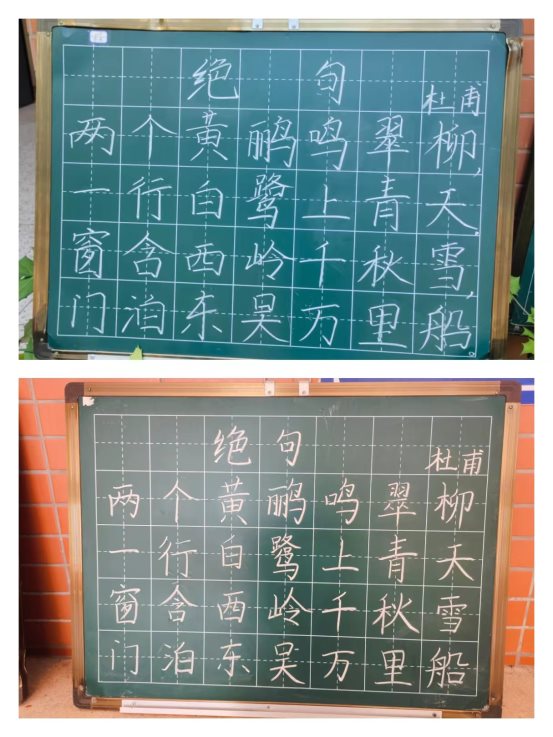 绝 句
杜甫
两个黄鹂鸣翠柳，
一行白鹭上青天。
窗含西岭千秋雪，
门泊东吴万里船。
绝句
杜甫
两个黄鹂鸣翠柳
一行白鹭上青天
窗含西岭千秋雪
门泊东吴万里船